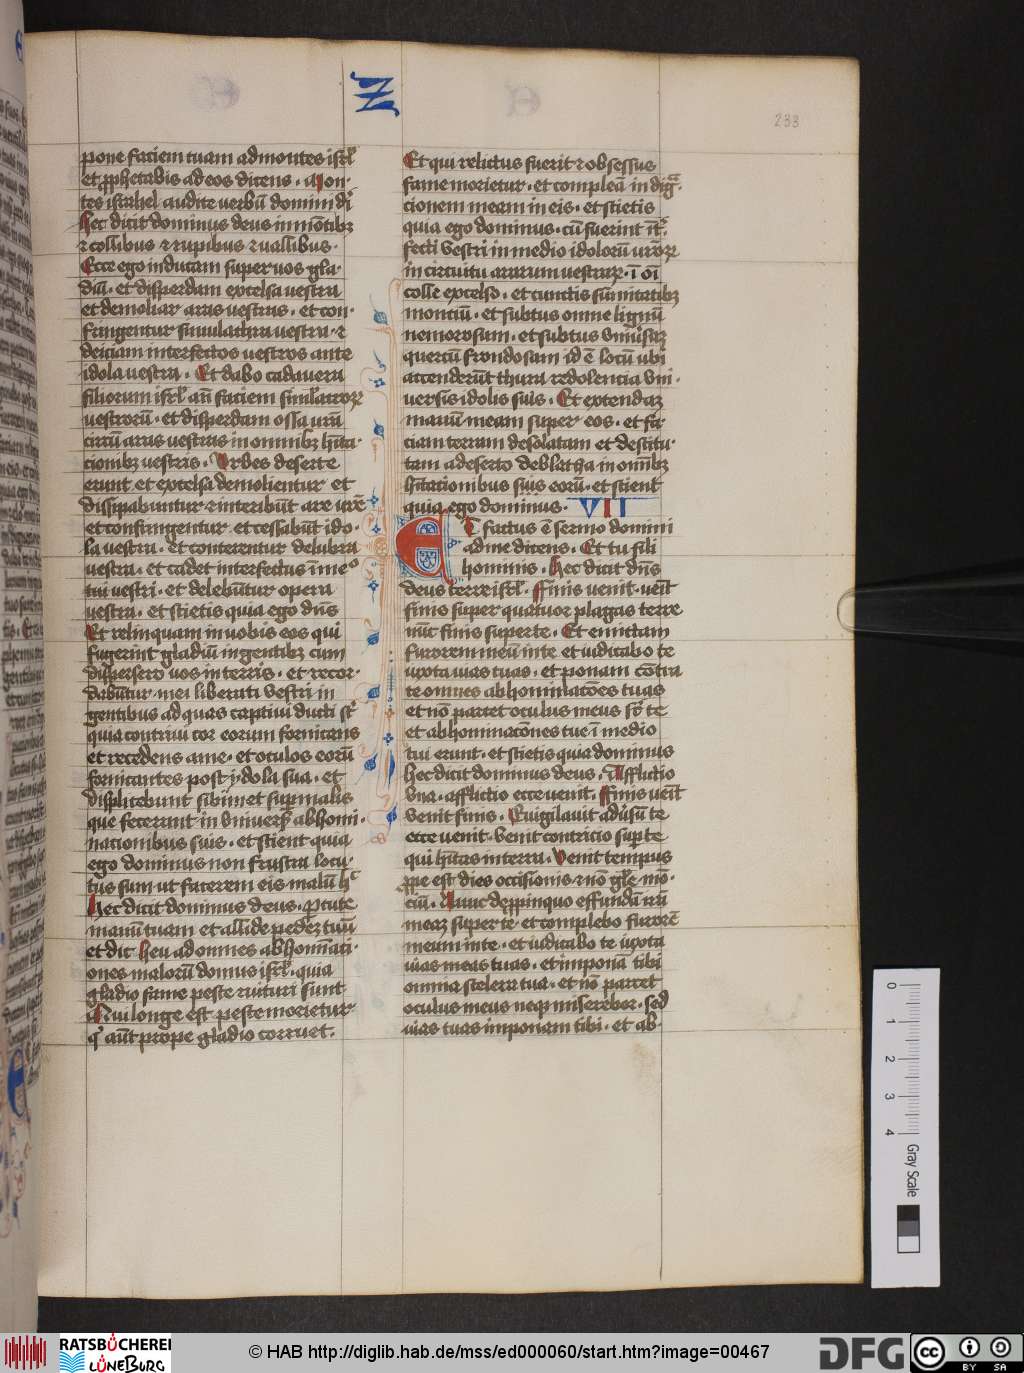 Z
233
pone faciem tuam ad montes isrl̄
et ꝓphetabis ad eos dicens . Mon⸗
tes israhel audite verbū domini di
hec dicit dominus deus in mōtibꝫ
⁊ collibus ⁊ rupibus ⁊ vallibus ·
Ecce ego inducam super vos gla⸗
diū · et disperdam excelsa vestra
et demoliar aras vestras · et con⸗
fringentur simulachra vestra · ⁊
deiciam interfectos vestros ante
idola vestra · Et dabo cadavera
filiorum isrl̄ an̄ faciem simlacroꝝ
vestrorū · et disperdam ossa vrā
circū aras vestras in omnibꝫ hīta⸗
cionibꝫ vestris · Urbes deserte
erunt et excelsa demolientur et
dissipabuntur ⁊ interibūt are vrē
et confringentur et cessabūt ido⸗
la vestra · et conterentur delubra
vestra · et cadet interfectus ī meo
tui vestri · et delebūtur opera
vestra · et scietis quia ego dn̄s
Et relinquam in vobis eos qui
fugerint gladiū in gentibꝫ cum
dispersero vos in terris · et recor⸗
dabūtur mei liberati vestri in
gentibus ad quas captivi ducti st̄
quia contrivi cor eorum fornicans
et recedens a me · et oculos eorū
fornicantes post ydola sua · et
displicebunt sibimet sup malis
que fecerunt in universꝭ abhomi⸗
nacionibus suis · et scient quia
ego dominus non frustra locu⸗
tus sum ut facerem eis malū hc
Hec dicit dominus deus · ꝑcute
manū tuam et allide pedeꝫ tuū
et dic heu ad omnes abhominati⸗
ones malorū domus isrl̄ · quia
gladio fame peste ruituri sunt
Qui longe est peste morietur
q aut prope gladio corruet ·
Et qui relictus fuerit ⁊ obsessus
fame morietur · et compleā indigᵃ⸗
cionem meam in eis · et scietis
quia ego dominus · cū fuerint īt
fecti vestri in medio idolorū vroꝝ
in circuitu ararum vestraꝝ · ī oī
colle excelso · et cunctis sūmitatibꝫ
montiū · et subtus omne lignū
nemorosum · et subtus universaꝫ
quercū frondosam id ē locū ubi
accenderūt thura redolencia uni⸗
versis idolis suis · Et extendaꝫ
manū meam super eos · et fa⸗
ciam terram desolatam et destitu⸗
tam a deserto deblatha in omībꝫ
hītationibus suis eorū · et scient
quia ego dominus · VII
Et factus ē sermo domini
ad me dicens · Et tu fili
hominis · hec dicit dn̄s
deus terre isrl̄ · Finis venit · veīt
finis super quatuor plagas terre
nūc finis super te · Et emittam
furorem meū in te et iudicabo te
iuxta vias tuas · et ponam cōtra
te omnes abhominacōes tuas
et nō parcet oculus meus sr̄ te
et abhominacōnes tue ī medio
tui erunt · et scietis quia dominus
hec dicit dominus deus · Afflictio
una · afflictio ecce venit · Finis veīt
venit finis · Evigilavit adūsū te
ecce venit · venit contricio sup te
qui hītas in terra · venit tempus
ꝓpe est dies occisionis ⁊ nō gle mō⸗
ciū · Nunc de ꝓpinquo effundā irā
meaꝫ super te · et complebo furorē
meum in te · et iudicabo te iuxta
vias meas tuas · et imponā tibi
omnia scelera tua · et nō parcet
oculus meus neqꝫ miserebor · sed
vias tuas imponam tibi · et ab⸗
0 1 2 3 4
Gray Scale
RATSBÜCHEREI
LÜNEBURG
© HAB http://diglib.hab.de/mss/ed000060/start.htm?image=00467
DFG
cc BY SA